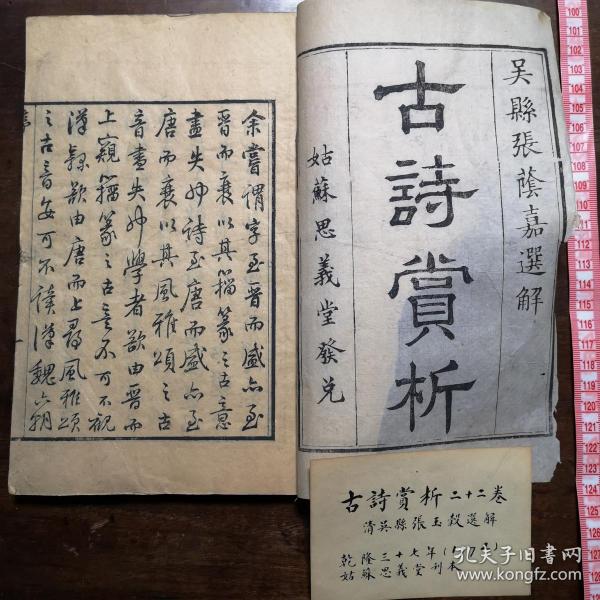 吴縣張蔭嘉選解
古詩賞析
姑蘇思義堂發兌
余嘗謂字至晋而盛亦至
晋而衰以其籀篆之古意
盡失也詩至唐而盛亦至
唐而衰以其風雅頌之古
音盡失也學者欲由晋而
上窺籀篆之古意不可不觀
漢隸欲由唐而上尋風雅頌
之古音安可不讀漢魏六朝
序
一
古詩賞析二十二卷
清吳縣張玉穀選解
乾隆三十七年
姑蘇思義堂刊本
孔夫子旧书网
www.kongfz.com
100
101
102
103
104
105
106
107
108
109
110
111
112
113
114
115
116
117
118
119
120
121
122
123
124
125
126
127
128